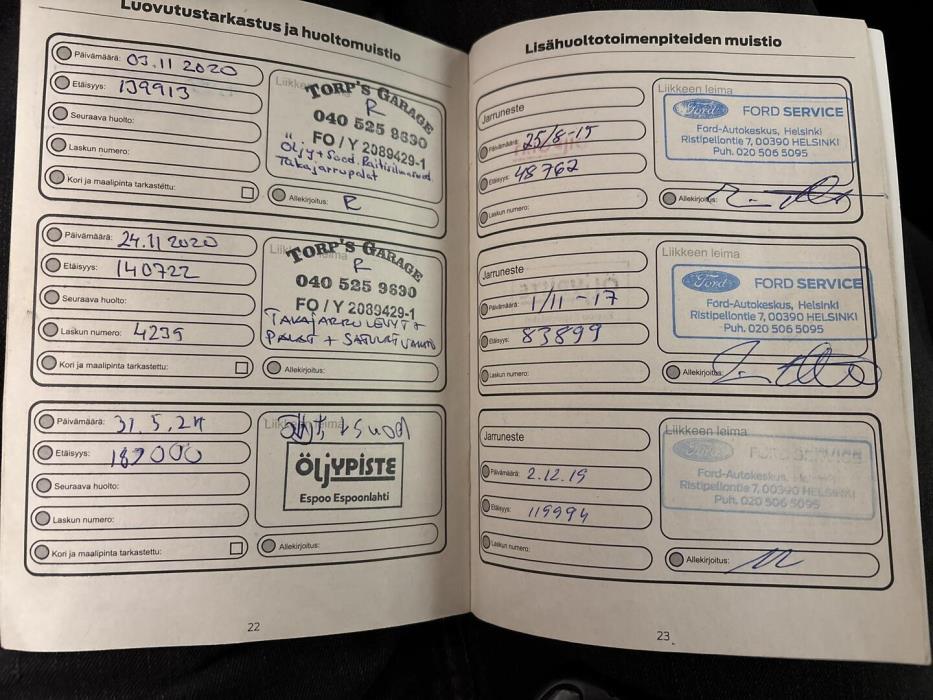 Luovutustarkastus ja huoltomuistio
Päivämäärä: 03.11 2020
Etäisyys: 139913
Seuraava huolto:
Laskun numero:
Kori ja maalipinta tarkastettu:
Liikkeen
TORP'S GARAGE
R
040 525 9630
FO / Y 2089429-1
Öljy + Suod. Raitisilmasuod
Takajarrupalat
Allekirjoitus: R
Päivämäärä: 24.11 2020
Etäisyys: 140722
Seuraava huolto:
Laskun numero: 4239
Kori ja maalipinta tarkastettu:
TORP'S GARAGE
R
040 525 9630
FO / Y 2089429-1
TAKAJARRULEVYT +
PALAT + SATULAT
Allekirjoitus:
Päivämäärä: 31.5.24
Etäisyys: 187000
Seuraava huolto:
Laskun numero:
Kori ja maalipinta tarkastettu:
Liikkeen leima
Öljyt + Suod
ÖLJYPISTE
Espoo Espoonlahti
Allekirjoitus:
22
Lisähuoltotoimenpiteiden muistio
Jarruneste
Päivämäärä: 25/8-15
Etäisyys: 48762
Laskun numero:
Liikkeen leima
Ford FORD SERVICE
Ford-Autokeskus, Helsinki
Ristipellontie 7, 00390 HELSINKI
Puh. 020 506 5095
Allekirjoitus:
Jarruneste
Päivämäärä: 1/11-17
Etäisyys: 83899
Laskun numero:
Liikkeen leima
Ford FORD SERVICE
Ford-Autokeskus, Helsinki
Ristipellontie 7, 00390 HELSINKI
Puh. 020 506 5095
Allekirjoitus:
Jarruneste
Päivämäärä: 2.12.19
Etäisyys: 119994
Laskun numero:
Liikkeen leima
Ford FORD SERVICE
Ford-Autokeskus,
Ristipellontie 7, 00390 HELSINKI
Puh. 020 506 5095
Allekirjoitus:
23